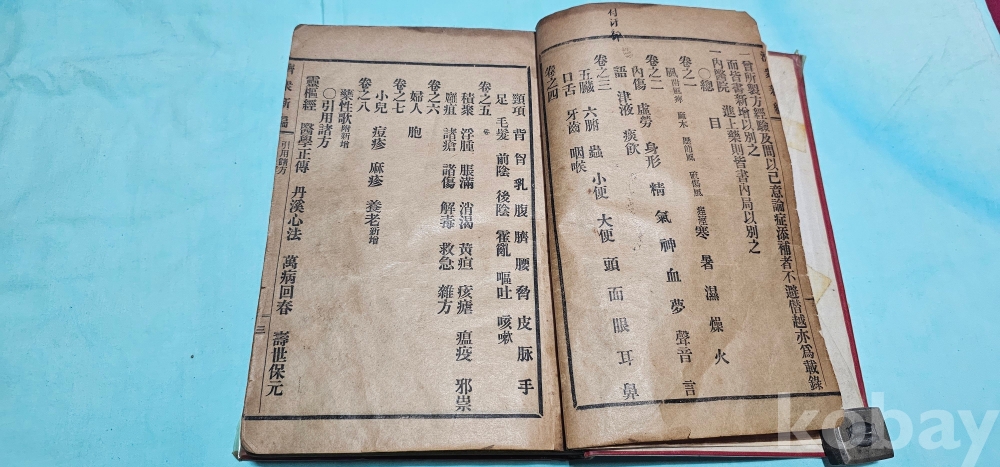 一曾所製方經驗及間以己意論症添補者不避僭越亦爲載錄
而皆書新增以別之
一內醫院 進上藥則皆書內局以別之
○總 目
卷之一
風 歷節風 破傷風 寒 暑 濕 燥 火
卷之二
內傷 虛勞 身形 精 氣 神 血 夢 聲音 言
語 津液 痰飮
卷之三
五臟 六腑 蟲 小便 大便 頭 面 眼 耳 鼻
口舌 牙齒 咽喉
卷之四
頸項 背 胷 乳 腹 臍 腰 脅 皮 脉 手
足 毛髮 前陰 後陰 霍亂 嘔吐 咳嗽
卷之五
積聚 浮腫 脹滿 消渴 黃疸 痎瘧 瘟疫 邪祟
癰疽 諸瘡 諸傷 解毒 救急 雜方
卷之六
婦人 胞
卷之七
小兒 痘疹 麻疹 養老新增
卷之八
藥性歌附新增
○引用諸方
靈樞經 醫學正傳 丹溪心法 萬病回春 壽世保元
引用諸方
三
kobay